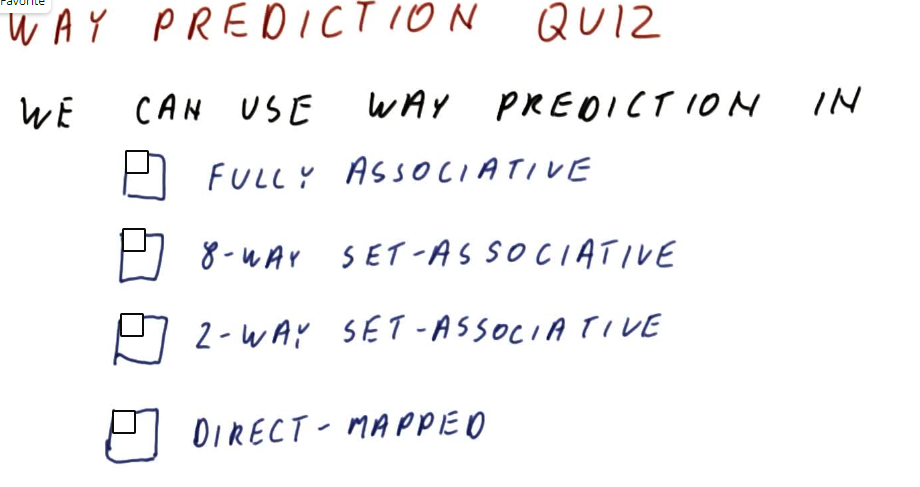 Favorite
WAY PREDICTION QUIZ
WE CAN USE WAY PREDICTION IN
FULLY ASSOCIATIVE
8-WAY SET-ASSOCIATIVE
2-WAY SET-ASSOCIATIVE
DIRECT-MAPPED